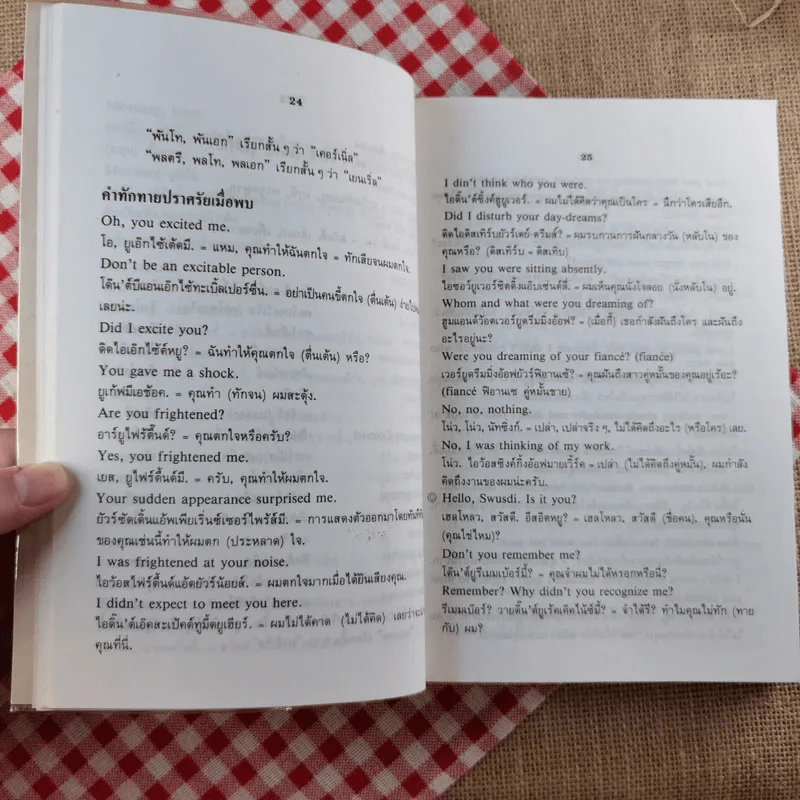 24
"พันโท, พันเอก" เรียกสั้น ๆ ว่า "เคอร์เนิ่ล"
"พลตรี, พลโท, พลเอก" เรียกสั้น ๆ ว่า "เยนเริ่ล"
คำทักทายปราศรัยเมื่อพบ
Oh, you excited me.
โอ, ยูเอ๊กไซ้เต้ดมี. = แหม, คุณทำให้ฉันตกใจ = ทักเสียจนผมตกใจ.
Don't be an excitable person.
โด๊น'ต์บีแอนเอ๊กไซ้ทะเบิ้ลเปอร์ซึ่น. = อย่าเป็นคนขี้ตกใจ (ตื่นเต้น) ง่ายไป
เลยน่ะ.
Did I excite you?
ดิดไอเอ๊กไซ้ต์หยู? = ฉันทำให้คุณตกใจ (ตื่นเต้น) หรือ?
You gave me a shock.
ยูเก้ฟมีเอช้อค. = คุณทำ (ทักจน) ผมสะดุ้ง.
Are you frightened?
อาร์ยูไฟร้ตึ้นด์? = คุณตกใจหรือครับ?
Yes, you frightened me.
เยส, ยูไฟร้ตึ้นด์มี. = ครับ, คุณทำให้ผมตกใจ.
Your sudden appearance surprised me.
ยัวร์ซัดเดิ้นแอ๊พเพียเริ่นซ์เซอร์ไพรัส์มี. = การแสดงตัวออกมาโดยทันที
ของคุณเช่นนี้ทำให้ผมตก (ประหลาด) ใจ.
I was frightened at your noise.
ไอว้อสไฟร้ตึ้นด์แอ้ตยัวร์น้อยส์. = ผมตกใจมากเมื่อได้ยินเสียงคุณ.
I didn't expect to meet you here.
ไอดิ๊น'ต์เอ๊คสะเป๊คต์ทูมี้ตยูเฮียร์. = ผมไม่ได้คาด (ไม่ได้คิด) เลยว่าจะ
คุณที่นี่.
25
I din't think who you were.
ไอดิ๊น'ต์ธิ้งค์ฮูยูเวอร์. = ผมไม่ได้คิดว่าคุณเป็นใคร = นึกว่าใครเสียอีก.
Did I disturb your day-dreams?
ดิดไอดิสเทิร์บยัวร์เดย์-ดรีมส์? = ผมรบกวนการฝันกลางวัน (หลับใน) ของ
คุณหรือ? (ดิสเทิร์บ = ดิสเทิบ)
I saw you were sitting absently.
ไอซอว์ยูเวอร์ซิตติ้งแอ๊บเซ่นต์ลี่. = ผมเห็นคุณนั่งใจลอย (นั่งหลับใน) อยู่.
Whom and what were you dreaming of?
ฮูมแอนด์ว้อตเวอร์ยูดรีมมิ่งอ๊อฟ? = (เมื่อกี้) เธอกำลังฝันถึงใคร และฝันถึง
อะไรอยู่นะ?
Were you dreaming of your fiancé? (fiancé)
เวอร์ยูดรีมมิ่งอ๊อฟยัวร์ฟิอานเซ้? = คุณฝันถึงสาวคู่หมั้นของคุณอยู่เร้อะ?
(fiancé ฟิอานเซ คู่หมั้นชาย)
No, no, nothing.
โน่ว, โน่ว, นัทธิงก์. = เปล่า, เปล่าจริง ๆ, ไม่ได้คิดถึงอะไร (หรือใคร) เลย.
No, I was thinking of my work.
โน่ว. ไอว้อสธิงคิ่งอ๊อฟมายเวิ้ร์ค = เปล่า (ไม่ได้คิดถึงคู่หมั้น), ผมกำลัง
คิดถึงงานของผมน่ะครับ.
Hello, Swusdi. Is it you?
เฮลโหลว, สวัสดี. อีสอิตหยู? = เฮลโหลว, สวัสดี (ชื่อคน), คุณหรือนั่น
(คุณใช่ไหม?)
Don't you remember me?
โด๊น'ต์ยูรีเมมเบ้อร์มี้? = คุณจำผมไม่ได้หรอกหรือนี่?
Remember? Why didn't you recognize me?
รีเมมเบ้อร์? วายดิ๊น'ต์ยูเร้คเค้คไน้ซ์มี้? = จำได้รึ? ทำไมคุณไม่ทัก (ทาย
กับ) ผม?